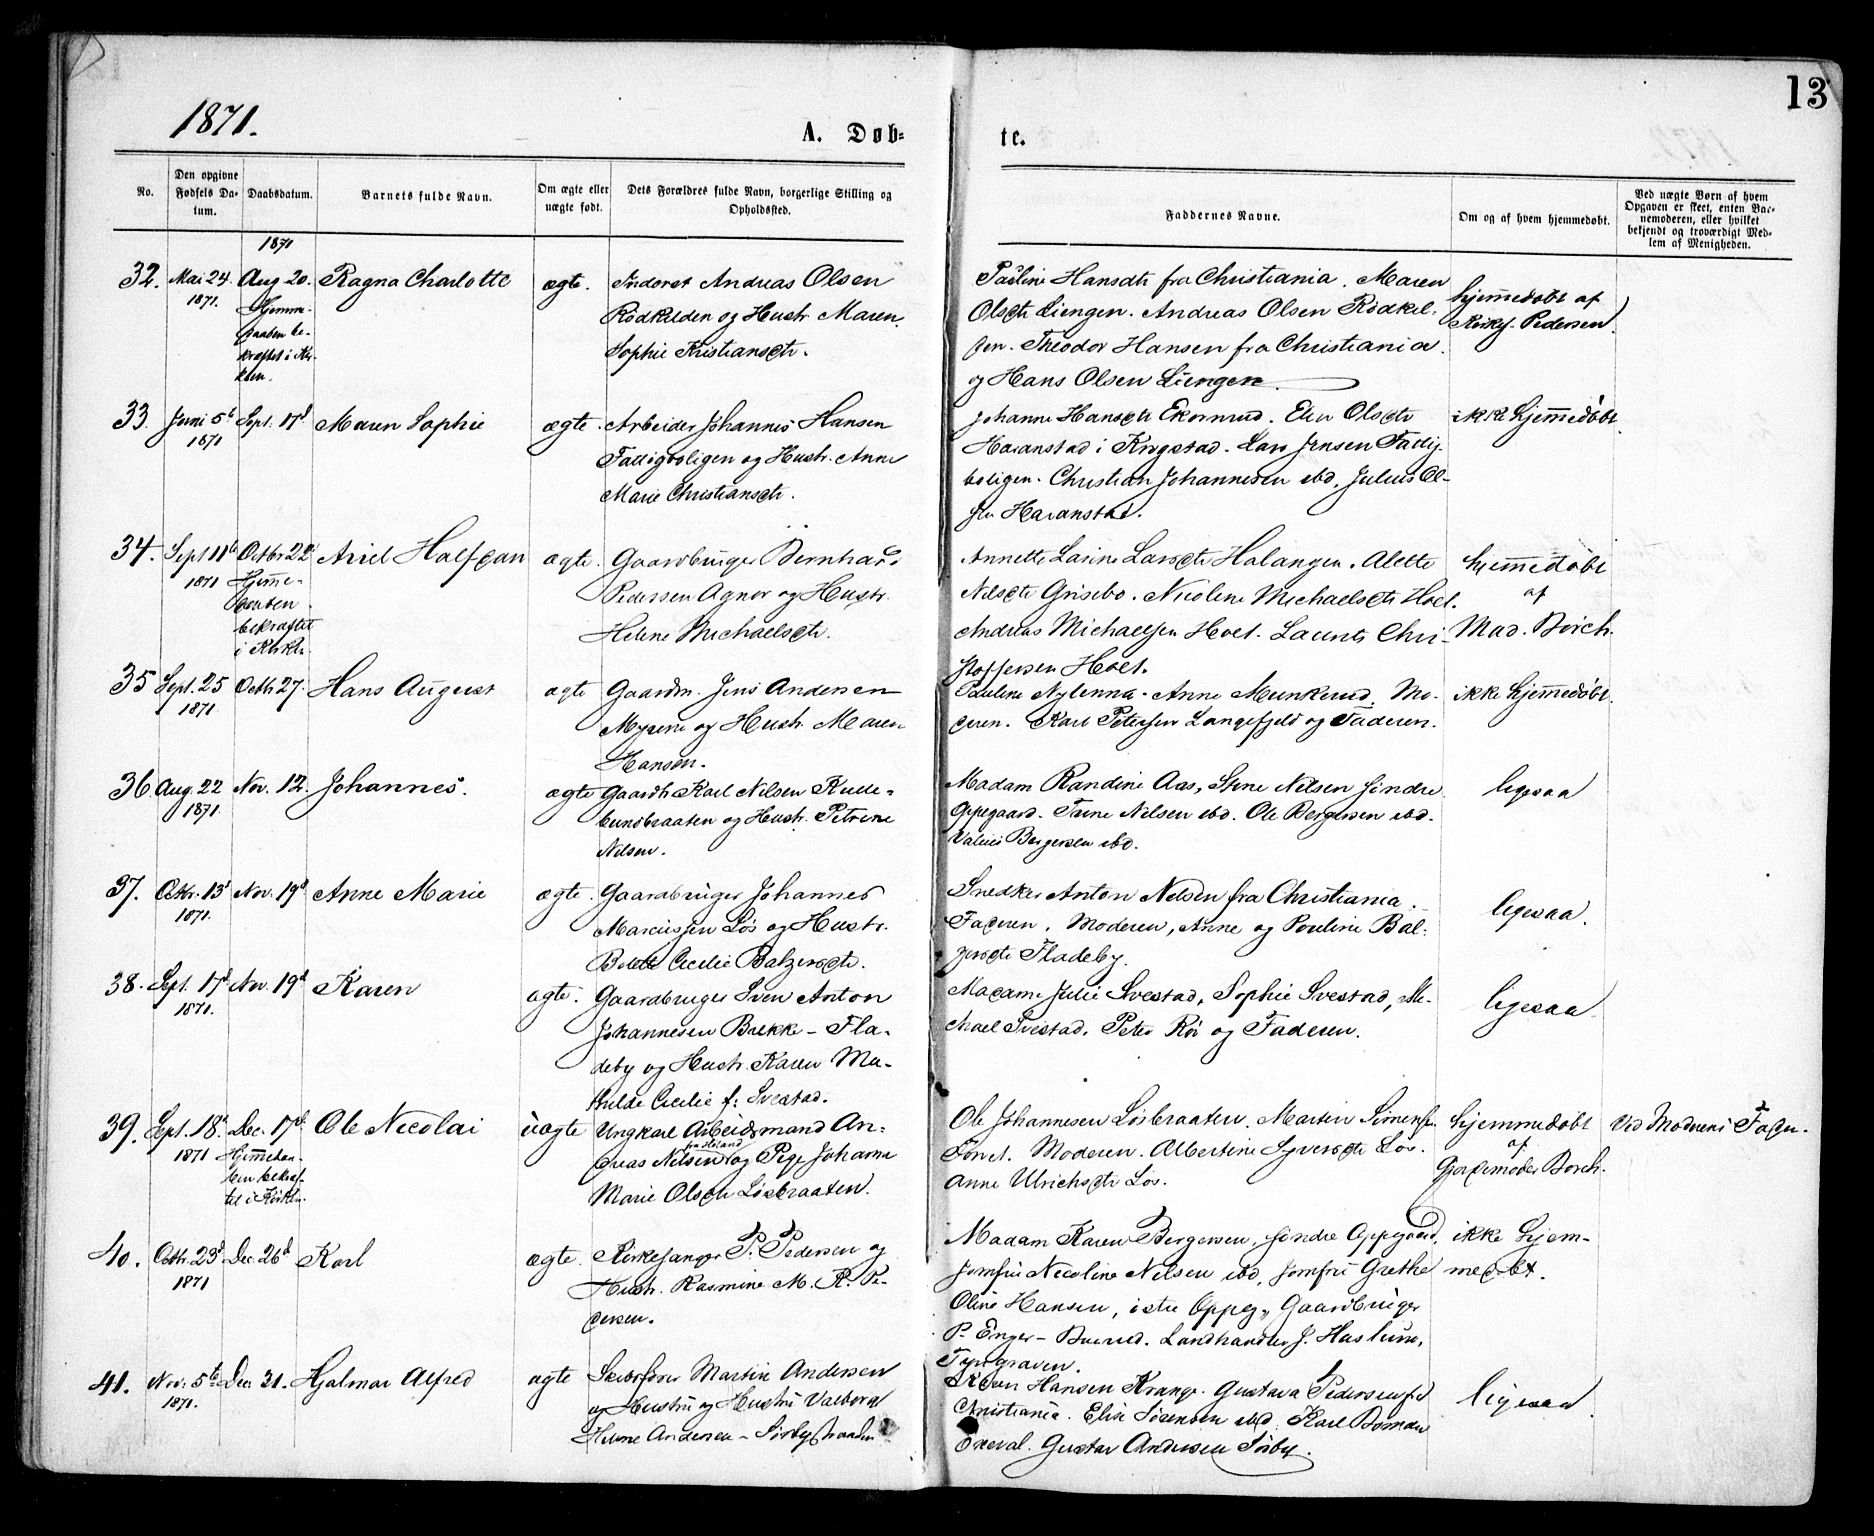 13
1871.
A. Døb-
te.
No.
Den opgivne Fødsels Da-tum.
Daabsdatum.
Barnets fulde Navn.
Om ægte eller uægte født.
Dets Forældres fulde Navn, borgerlige Stilling og Opholdssted.
Faddernes Navne.
Om og af hvem hjemmedøbt.
Ved uægte Børn af hvem Opgaven er skeet, enten Bar-nemoderen, eller hvilket bekjendt og troværdigt Med-lem af Menigheden.
1871
32. Mai 24. Aug. 20. Ragna Charlotte ægte. Inderst Andreas Olsen
1871. Hjemme-
daaben be-
kræftet i Kir-
ken.
Rødkilden og Hustr. Maren
Sophie Kristiansdtr.
Pauline Hansdtr fra Christiania. Maren
Olsdtr Liengen. Andreas Olsen Rødkil-
den. Theodor Hansen fra Christiania
og Hans Olsen Liengen.
hjemmedøbt af
Kirkes. Pedersen.
33. Juni 5te Sept. 17d Maren Sophie ægte. Arbeider Johannes Hansen
1871
Fattigboligen og Hustr. Anne
Marie Christiansdtr.
Johanne Hansdtr Ekornrud. Elen Olsdtr
Haranstad i Krogstad. Lars Jensen Fattig-
boligen. Christian Johannesen ibd. Julius Ol-
sen Haranstad.
ikke hjemmedøbt.
34. Sept 11te Octbr 22d Ariel Halfdan ægte. Gaardbruger Bernhard
1871 Hjemme-
daaben
bekræftet
i Kirken.
Pedersen Agnor og Hustr.
Helene Michaelsdtr.
Annette Larine Larsdtr Halangen. Alette
Nilsdtr Grisebo. Nicoline Michaelsdtr Hoel.
Andreas Michaelsen Hoel. Laurits Chri-
stoffersen Hoel.
hjemmedøbt
af
Mad. Borch.
35 Sept. 25 Octbr 27. Hans August ægte Gaardm. Jens Andersen
1871.
Mysene og Hustr. Maren
Hansen.
Pauline Nylenna. Anne Munkerud. Mo-
deren. Karl Petersen Langefjeld og Faderen.
ikke hjemmedøbt.
36. Aug. 22 Nov. 12. Johannes. ægte Gaardbr. Karl Nilsen Kulle-
1871.
bundbraaten og Hustr. Petrine
Nilsen.
Madam Randine Aas, Stine Nilsen søndre
Oppegaard. Trine Nilsen ibd. Ole Bergersen ibd.
Valerius Bergersen ibd.
ligesaa
37. Octbr. 13d Nov. 19d Anne Marie ægte. Gaardbruger Johannes
1871.
Marcussen Løs og Hustr.
Bolette Cecilie Balzersdtr.
Snedker Anton Nilsen fra Christiania.
Faderen. Moderen, Anne og Pouline Bal-
zersdtr Fladeby.
ligesaa.
38. Sept. 17d Nov. 19d Karen ægte. Gaardbruger Sven Anton
1871.
Johannesen Bække - Fla-
deby og Hustr. Karen Ma-
thilde Cecilie f: Svestad.
Madame Julie Svestad, Sophie Svestad, Mi-
chael Svestad. Peter Rør og Faderen.
ligesaa
39. Sept. 18d Dec. 17d Ole Nicolai uægte Ungkarl Arbeidsmand An-
1871 Hjemmedaa-
ben bekræf-
tet i Kirken.
fra Høland
dreas Nilsen og Pige Johanne
Marie Olsdtr Løsbraaten.
Ole Johannesen Løsbraaten. Martin Simensen
Tømt. Moderen. Albertine Syversdtr Løs.
Anne Ulrichsdtr Løs.
hjemmedøbt
af
Gjordemoder Borch.
Ved Moderens Fader.
40. Octbr. 23d Dec. 26d Karl ægte. Kirkesanger P. Pedersen og
1871
Hustr. Rasmine M. K. Pe-
dersen.
Madam Karen Bergersen, søndre Oppegaard.
Jomfru Nicoline Nilsen ibd, Jomfru Grethe
Oline Hansen, istre Oppeg., Gaardbruger
P. Enger - Buerud. Landhandler J. Haslund,
Tyrigraven.
ikke hjem-
medøbt.
41. Nov. 5te Dec. 31. Hjalmar Alfred ægte Skibsfører Martin Andersen
1871.
og Hustru og Hustru Valborg
Helene Andersen - Sørbystranden
Hansen Krange. Gustava Pedersen fra
Christiania. Elise Sørensen ibd. Karl Roman
Oxeval. Gustav Andersen Sørby.
ligesaa.